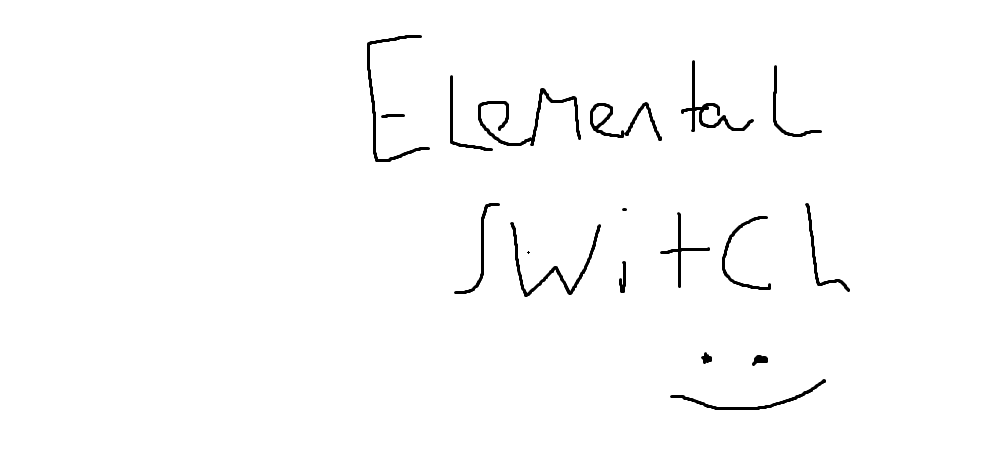 Elemental
Switch